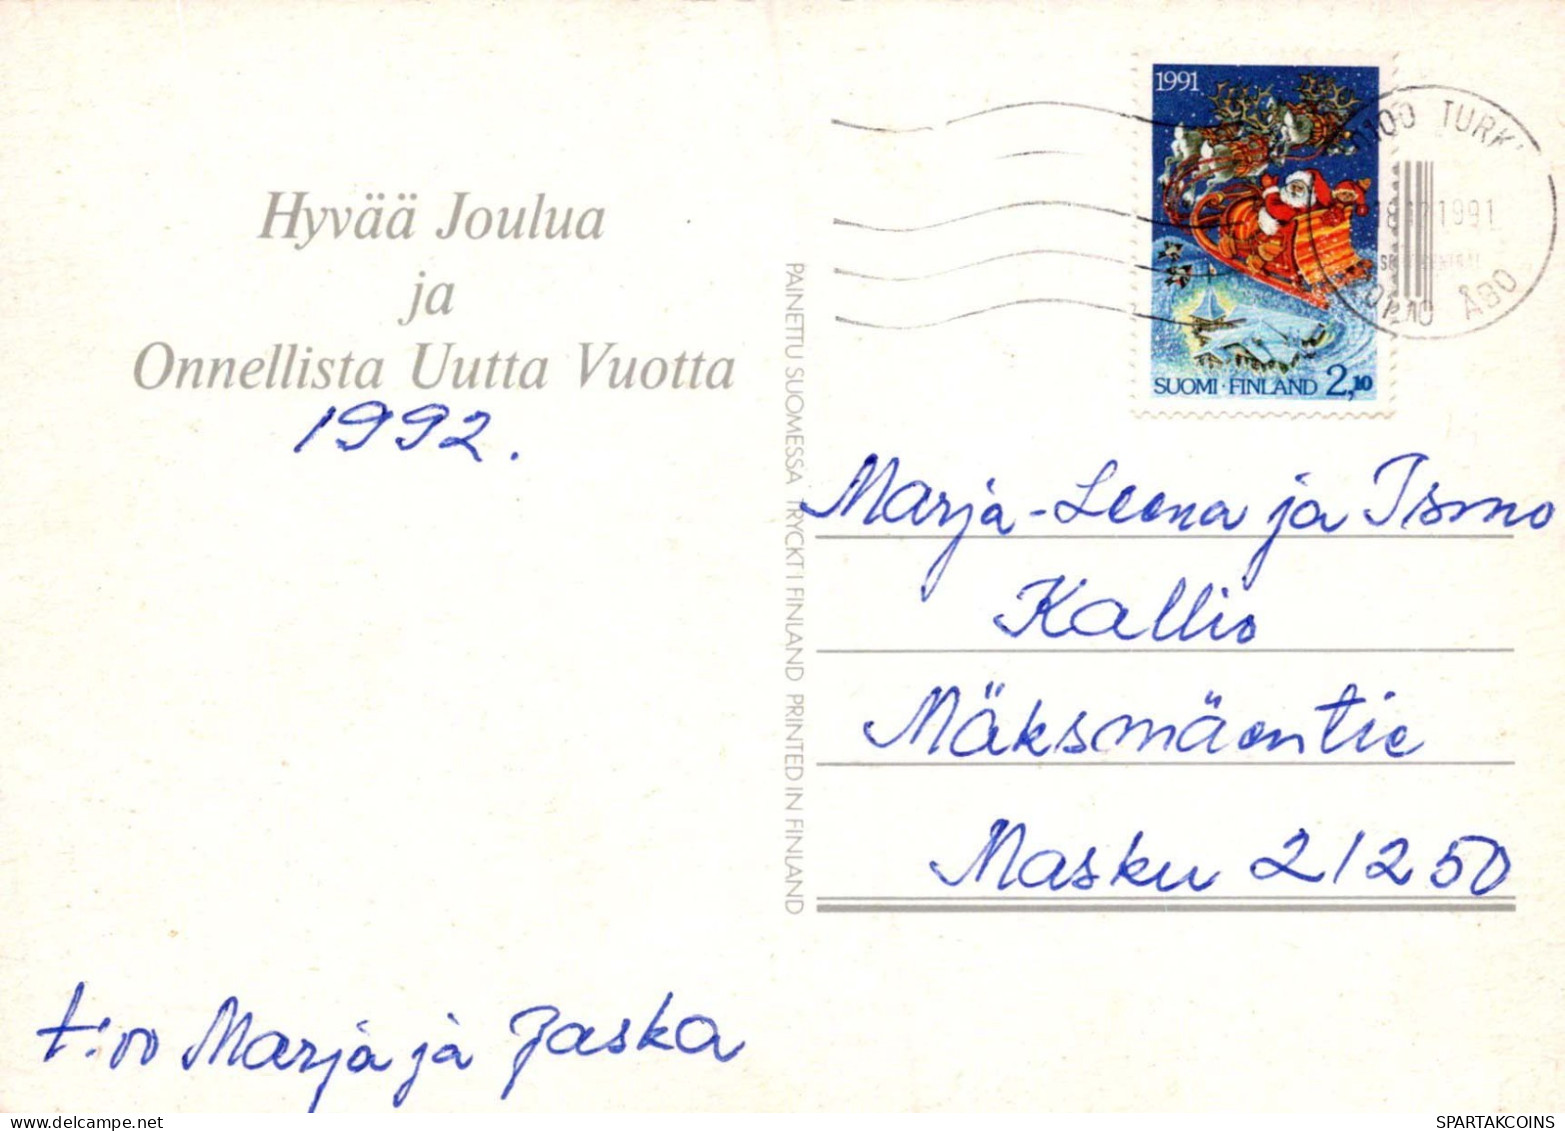 Hyvää Joulua
ja
Onnellista Uutta Vuotta
1992.
t:oo Marja ja Jaska
PAINETTU SUOMESSA TRYCKT I FINLAND PRINTED IN FINLAND
1991
SUOMI · FINLAND 2,10
TURK
1991
ÅBO
Marja-Leena ja Ismo
Kallio
Mäksmäentie
Masku 21250
SPARTAKCOINS